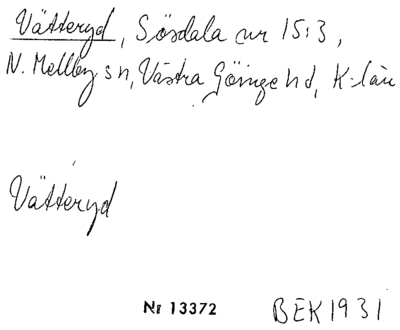 Vätteryd, Sösdala nr 15:3,
N. Mellby sn, Västra Göinge hd, K-län
Vätteryd
Nr 13372 BEK 1931